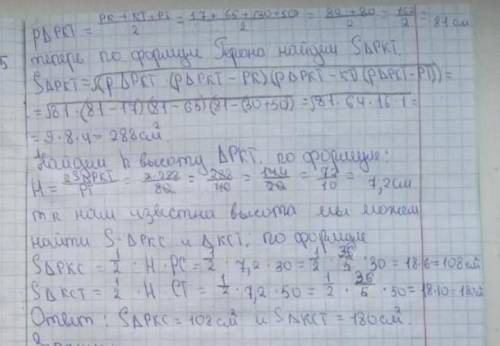 PΔPKT = (PK + KT + PT)/2 = (17 + 65 + (30+50))/2 = (82 + 80)/2 = 162/2 = 81 см
теперь по формуле Герона найдем SΔPKT.
SΔPKT = √(pΔPKT · (pΔPKT − PK)(pΔPKT − KT)(pΔPKT − PT)) =
= √(81 · (81 − 17)(81 − 65)(81 − (30+50))) = √(81 · 64 · 16 · 1) =
= 9 · 8 · 4 = 288 см².
Найдем h высоту ΔPKT. по формуле:
H = 2SΔPKT/PT = 2·288/80 = 288/40 = 144/20 = 72/10 = 7,2 см
тк нам известна высота мы можем
найти S ΔPKC и ΔKCT. по формуле
SΔPKC = 1/2 · H · PC = 1/2 · 7,2 · 30 = 1/2 · 36/5 · 30 = 18·6 = 108 см
SΔKCT = 1/2 · H CT = 1/2 · 7,2 · 50 = 1/2 · 36/5 · 50 = 18·10 = 180 см²
Ответ: SΔPKC = 108 см² и SΔKCT = 180 см².